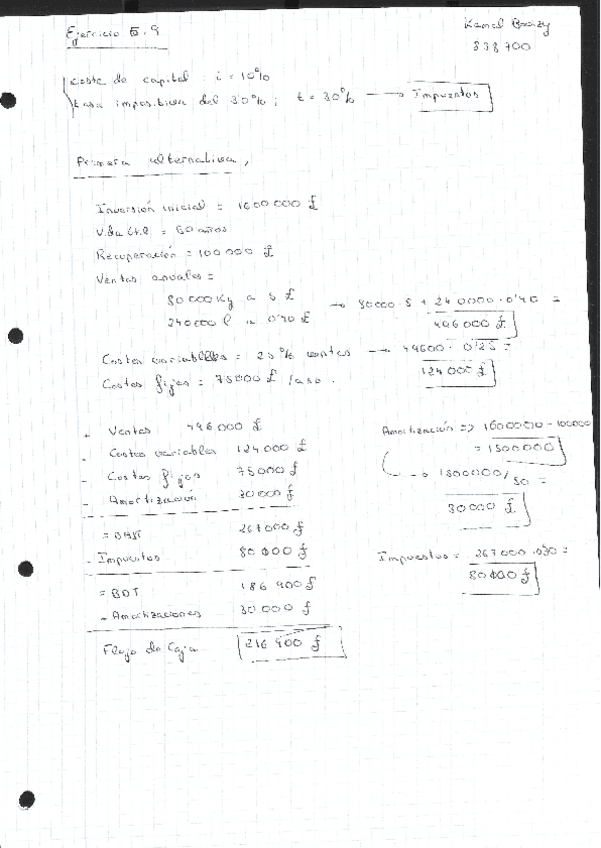 Ejercicio 5.9
Kamel Bouizy
838700
Coste de capital : i = 10%
tasa impositiva del 30% ; t = 30% → Impuestos
Primera alternativa,
Inversión inicial = 1600000 £
Vida útil = 50 años
Recuperación = 100000 £
Ventas anuales =
80000 Kg a 5 £ → 80000 · 5 + 240000 · 0'40 =
240000 l a 0'40 £ 496000 £
Costes variables = 25% ventas → 49600 · 0'25 =
124000 £
Costes fijos = 75000 £ /año.
+ Ventas 496000 £
- Costes variables 124000 £
- Costes fijos 75000 £
- Amortización 30000 £
= BAIT 267000 £
- Impuestos 80100 £
= BDT 186900 £
- Amortizaciones 30000 £
Flujo de Caja 216900 £
Amortización => 1600000 - 100000
= 1500000
→ 1500000/50 =
30000 £
Impuestos = 267000 · 030 =
80100 £